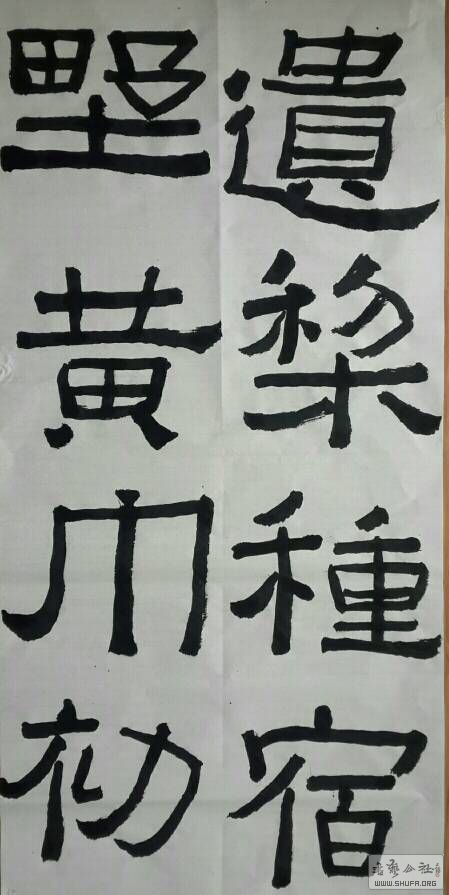 遺棃種宿
野黃巾初
书艺公社
WWW.SHUFA.ORG